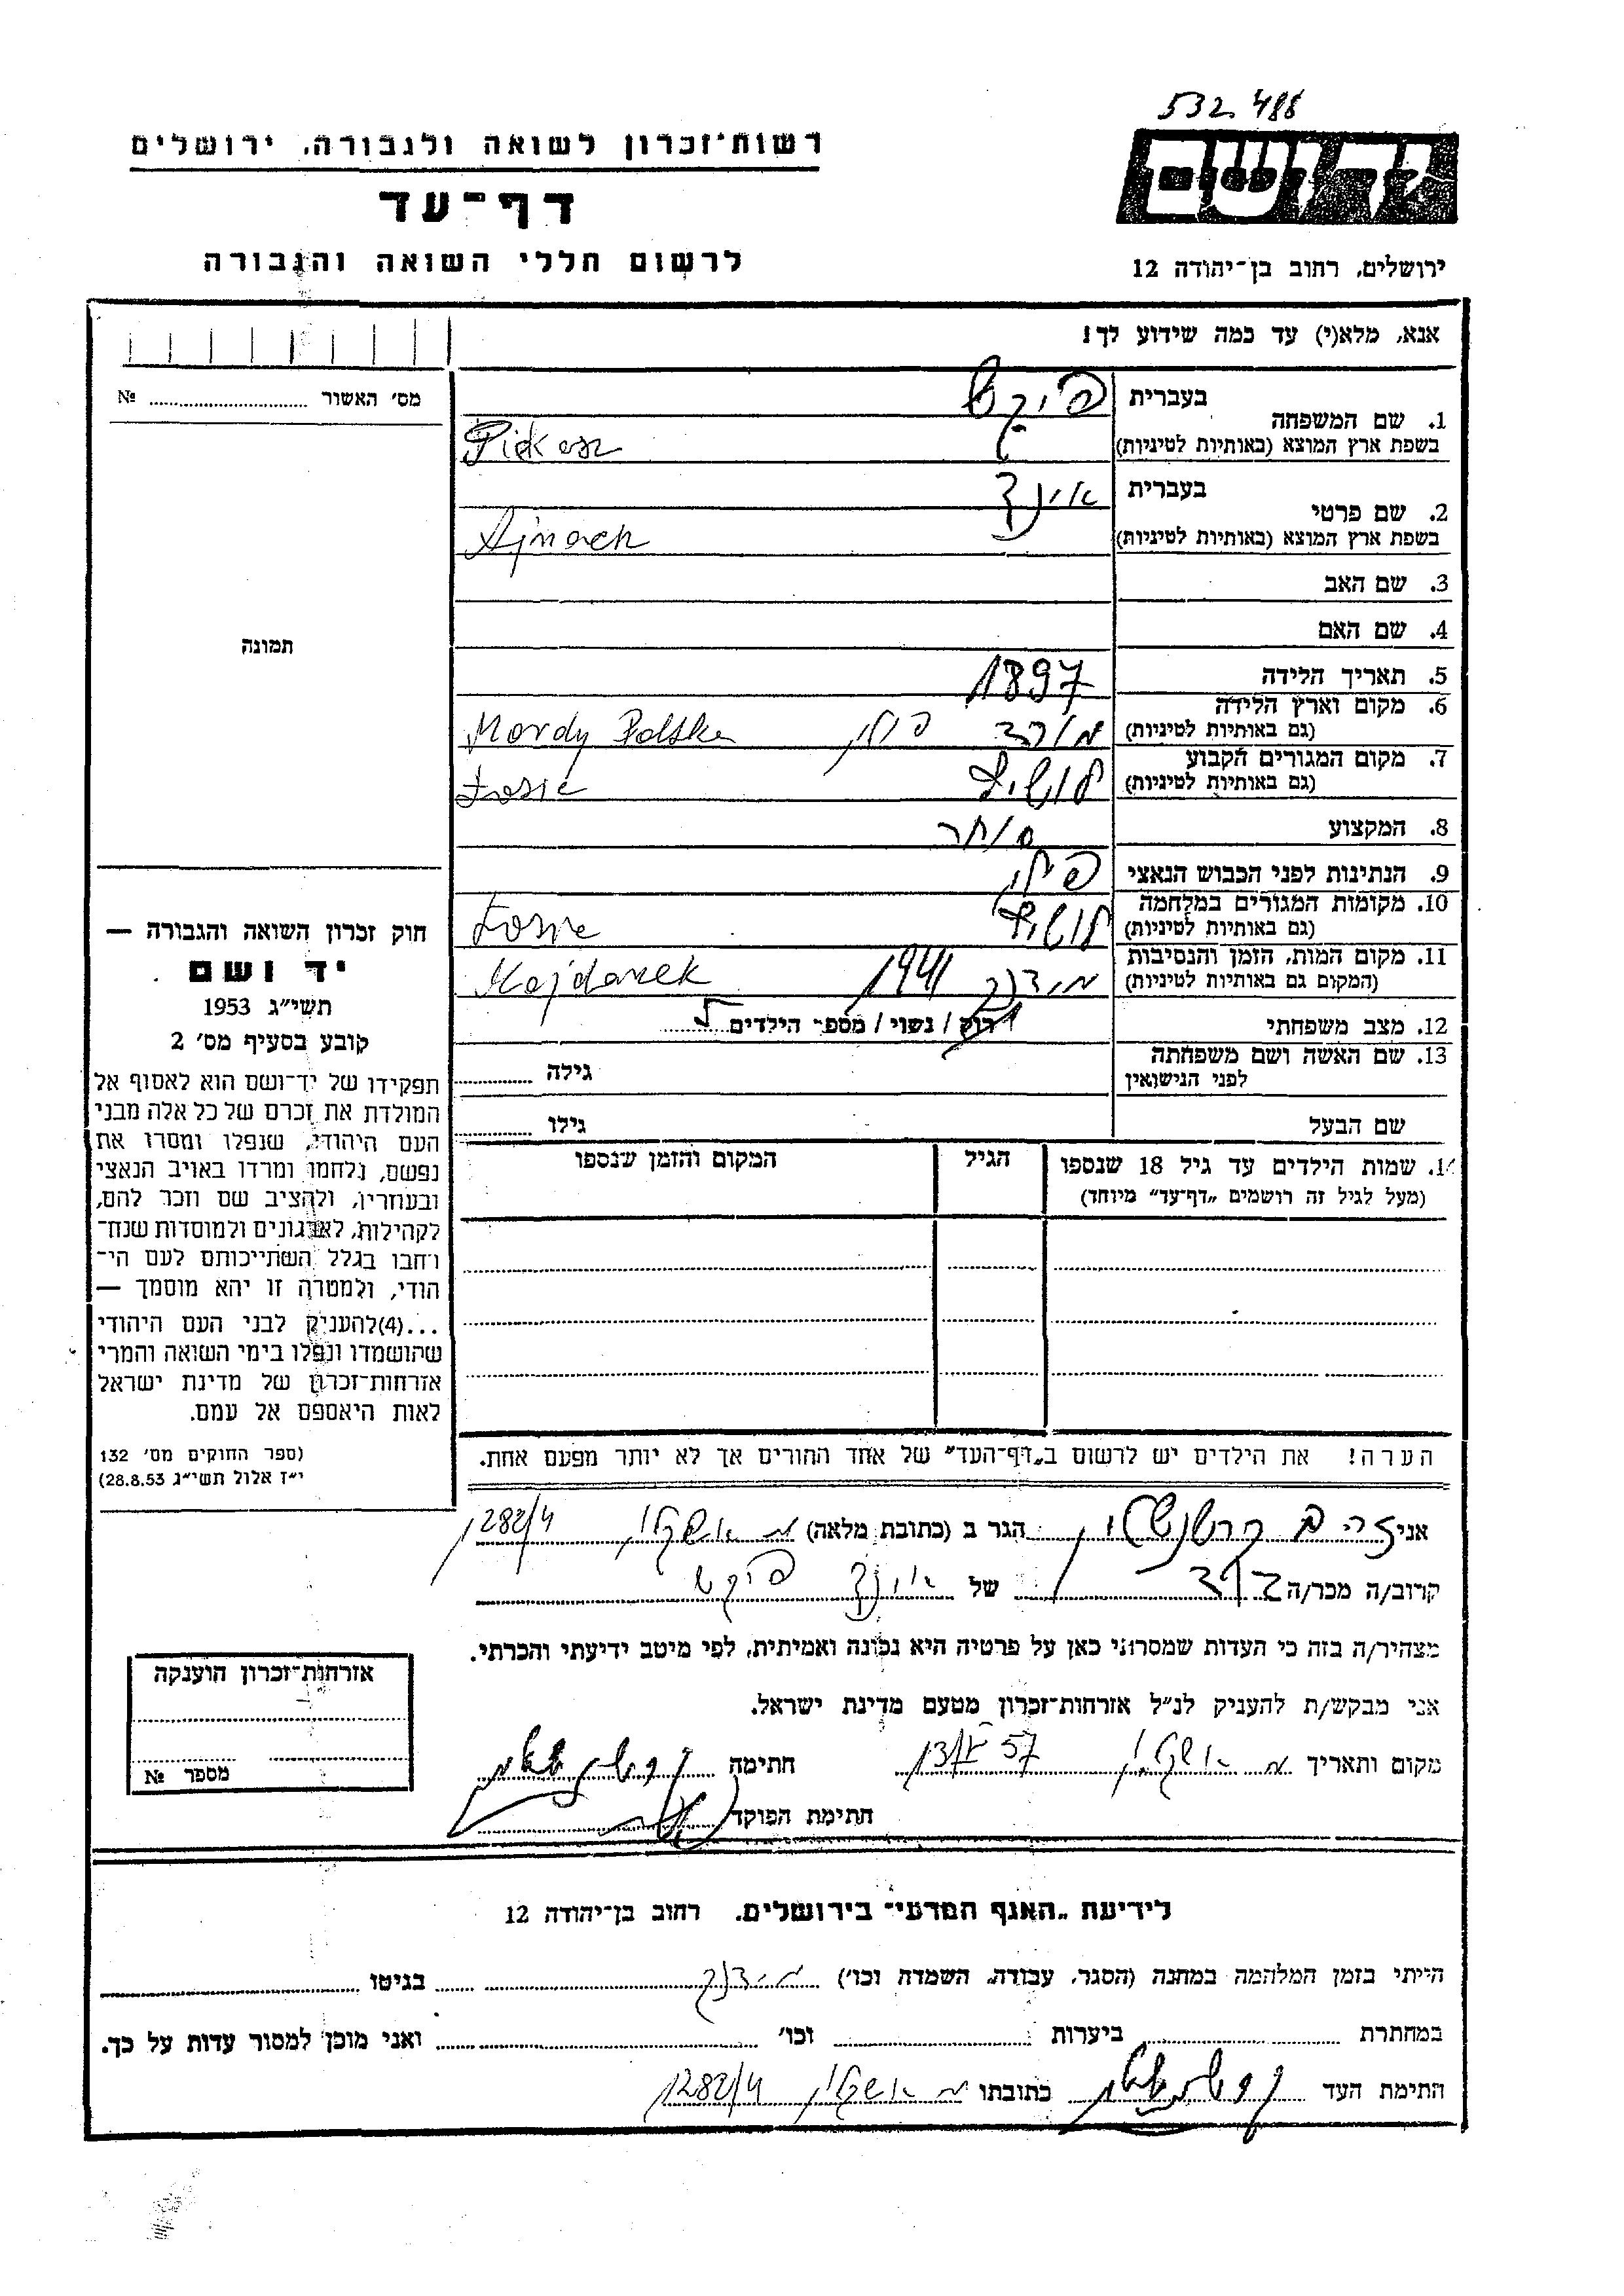 532.488
רשות־זכרון לשואה ולגבורה, ירושלים
דף־עד
לרשום חללי השואה והגבורה
יד ושם
ירושלים, רחוב בן־יהודה 12
אנא, מלא(י) עד כמה שידוע לך!
מס׳ האשור № 
תמונה
1. שם המשפחה
בעברית
בשפת ארץ המוצא (באותיות לטיניות)
Pickasz
2. שם פרטי
בעברית
בשפת ארץ המוצא (באותיות לטיניות)
Ajnoch
3. שם האב
4. שם האם
5. תאריך הלידה 1897
6. מקום וארץ הלידה
(גם באותיות לטיניות)
מורד פולין Mordy Polska
7. מקום המגורים הקבוע
(גם באותיות לטיניות)
לושיץ Łosic
8. המקצוע סוחר
9. הנתינות לפני הכבוש הנאצי פולין
10. מקומות המגורים במלחמה
(גם באותיות לטיניות)
לושיץ
11. מקום המות, הזמן והנסיבות
(המקום גם באותיות לטיניות)
מידנק 1941 Majdanek
12. מצב משפחתי רוק / נשוי / מספר הילדים 5
13. שם האשה ושם משפחתה
לפני הנישואין גילה
שם הבעל גילו
14. שמות הילדים עד גיל 18 שנספו הגיל המקום והזמן שנספו
(מעל לגיל זה רושמים „דף־עד״ מיוחד)
הערה! את הילדים יש לרשום ב„דף־העד״ של אחד ההורים אך לא יותר מפעם אחת.
חוק זכרון השואה והגבורה —
יד ושם
תשי״ג 1953
קובע בסעיף מס׳ 2
תפקידו של יד־ושם הוא לאסוף אל
המולדת את זכרם של כל אלה מבני
העם היהודי, שנפלו ומסרו את
נפשם, נלחמו ומרדו באויב הנאצי
ובעוזריו, ולהציב שם וזכר להם,
לקהילות, לארגונים ולמוסדות שנח־
רחבו בגלל השתייכותם לעם הי־
הודי, ולמטרה זו יהא מוסמך —
...(4)להעניק לבני העם היהודי
שהושמדו ונפלו בימי השואה והמרי
אזרחות־זכרון של מדינת ישראל
לאות היאספם אל עמם.
(ספר החוקים מס׳ 132
י״ז אלול תשי״ג 28.8.53)
אני הגר ב (כתובת מלאה) אשקלון 1282/4
קרוב/ה מכר/ה של
מצהיר/ה בזה כי העדות שמסרתי כאן על פרטיה היא נכונה ואמיתית, לפי מיטב ידיעתי והכרתי.
אני מבקש/ת להעניק לנ״ל אזרחות־זכרון מטעם מדינת ישראל.
מקום ותאריך אשקלון חתימה
חתימת הפוקד
אזרחות־זכרון הוענקה
מספר №
לידיעת „האגף המדעי״ בירושלים, רחוב בן־יהודה 12
הייתי בזמן המלחמה במחנה (הסגר, עבודה, השמדה וכו׳) מידנק בגיטו
במחתרת ביערות וכו׳ ואני מוכן למסור עדות על כך.
חתימת העד כתובתו אשקלון 1282/4